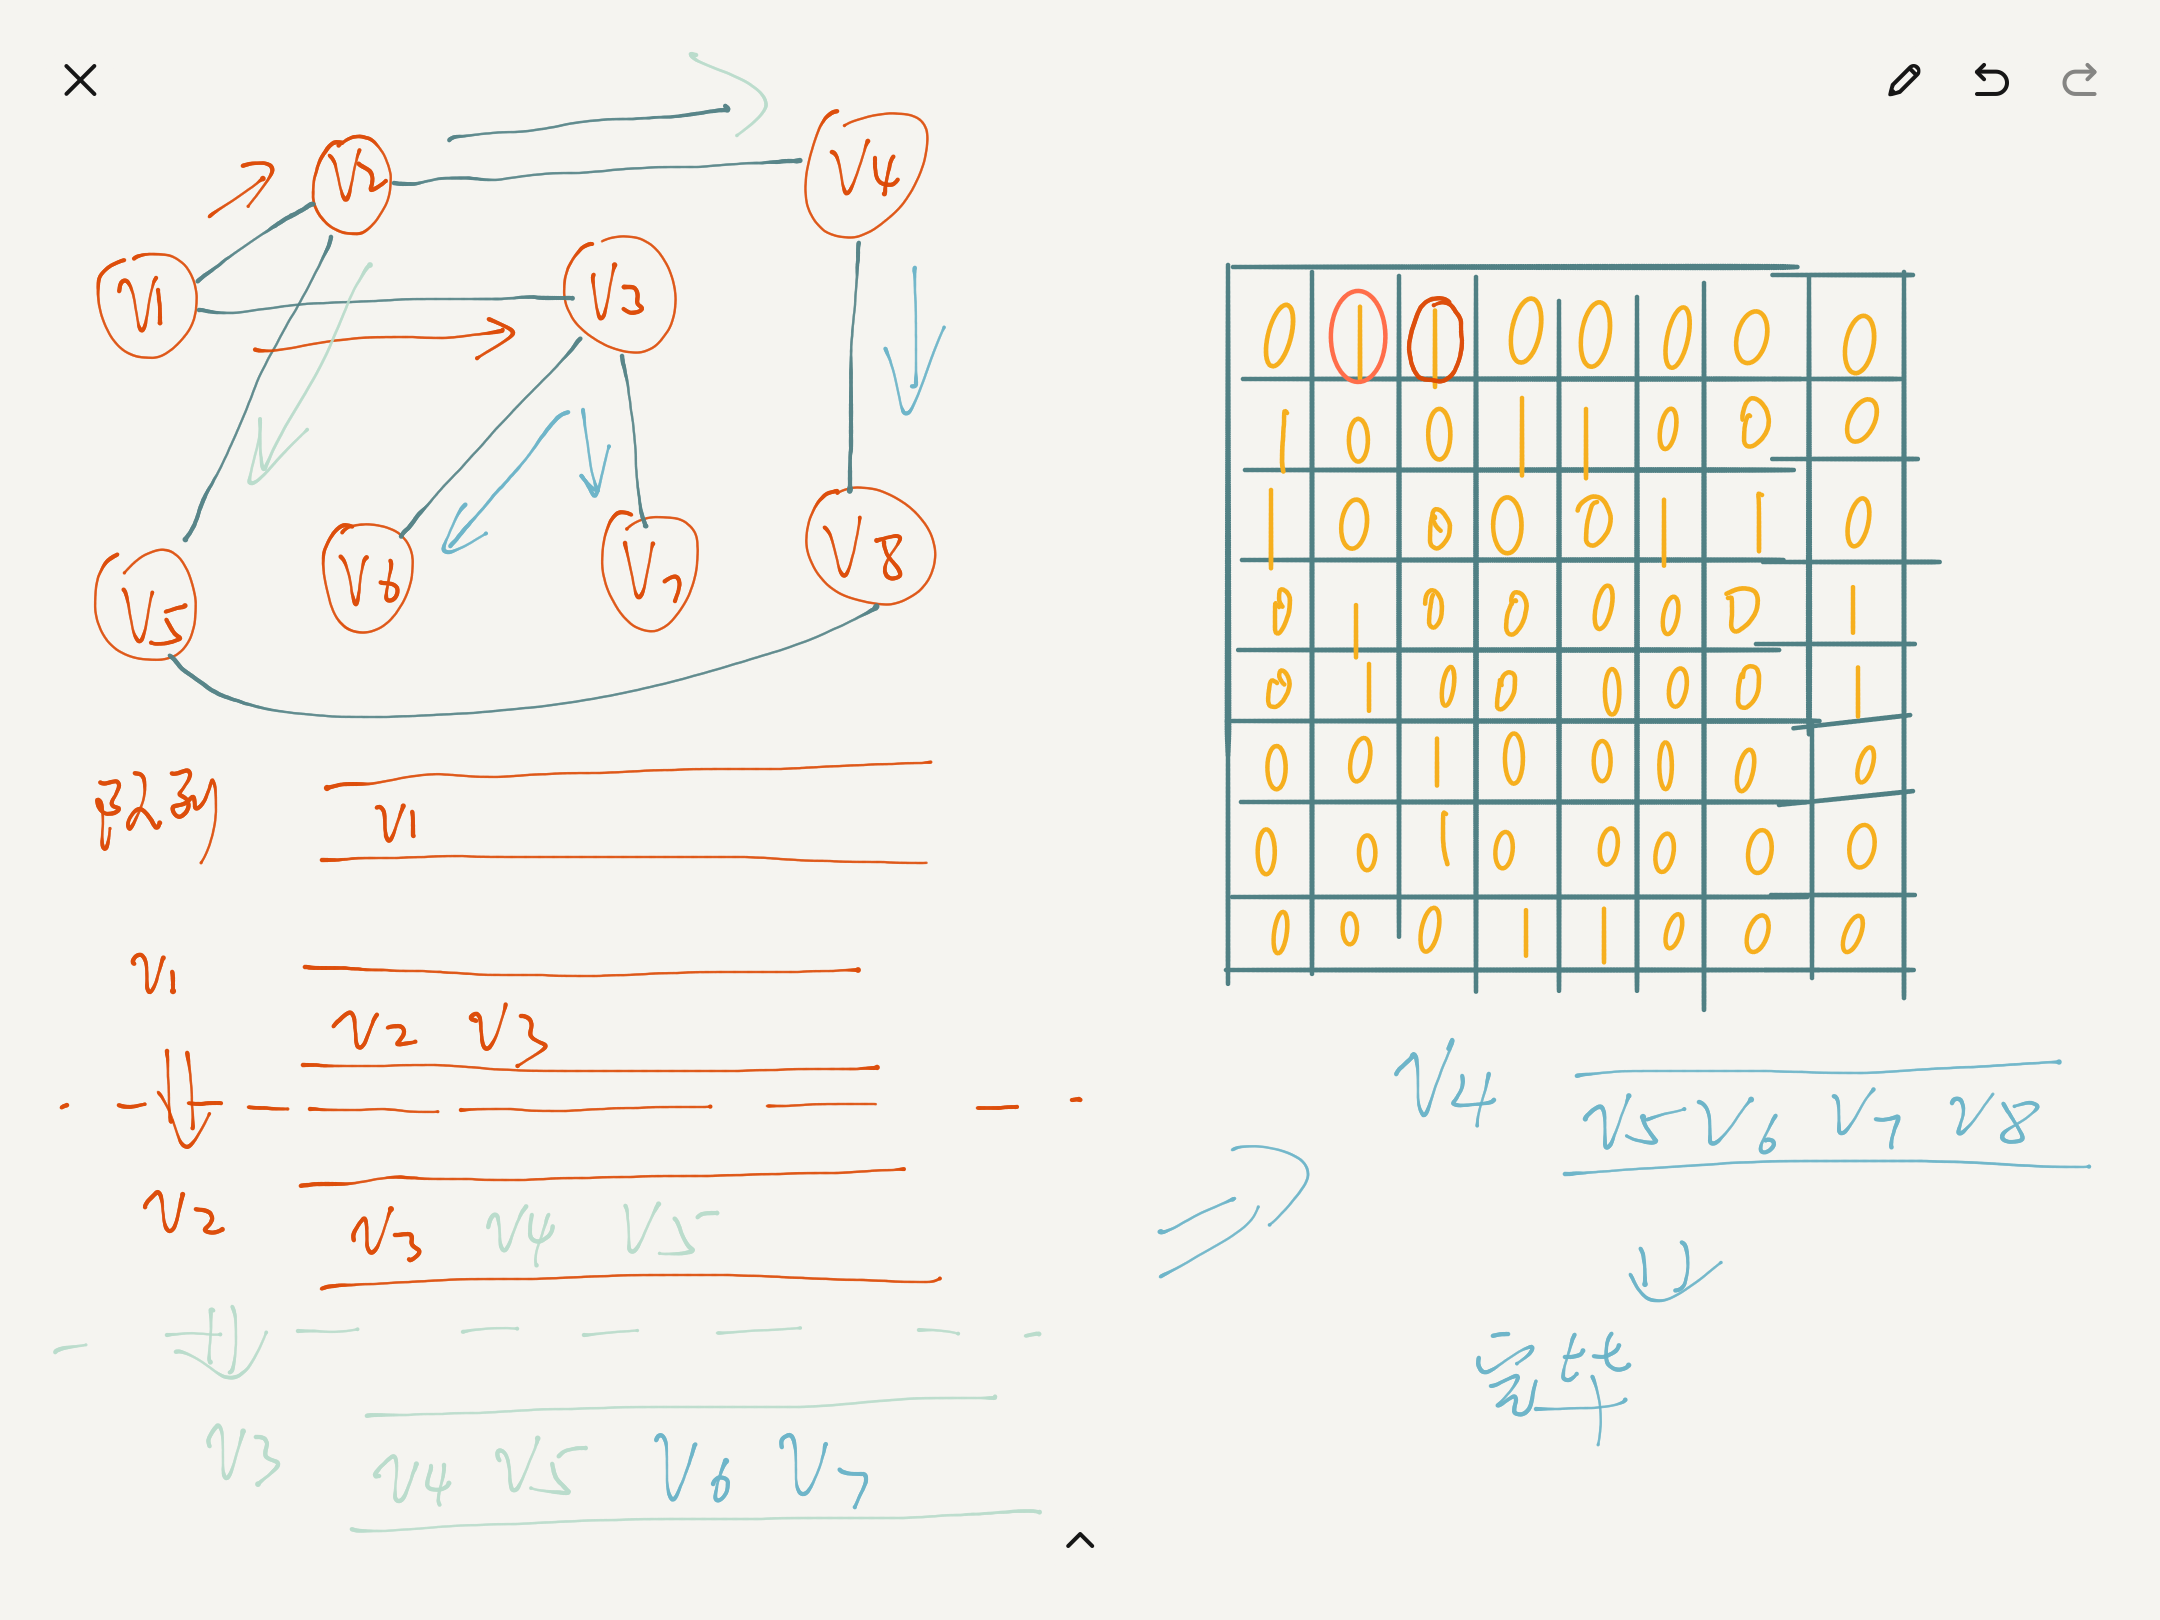 V2 V4
V1 V3
V5 V6 V7 V8
V1
V1
V2 V3
V2
V3 V4 V5
V3
V4 V5 V6 V7
0 1 1 0 0 0 0 0
1 0 0 1 1 0 0 0
1 0 0 0 0 1 1 0
0 1 0 0 0 0 0 1
0 1 0 0 0 0 0 1
0 0 1 0 0 0 0 0
0 0 1 0 0 0 0 0
0 0 0 1 1 0 0 0
V4
V5 V6 V7 V8
完毕